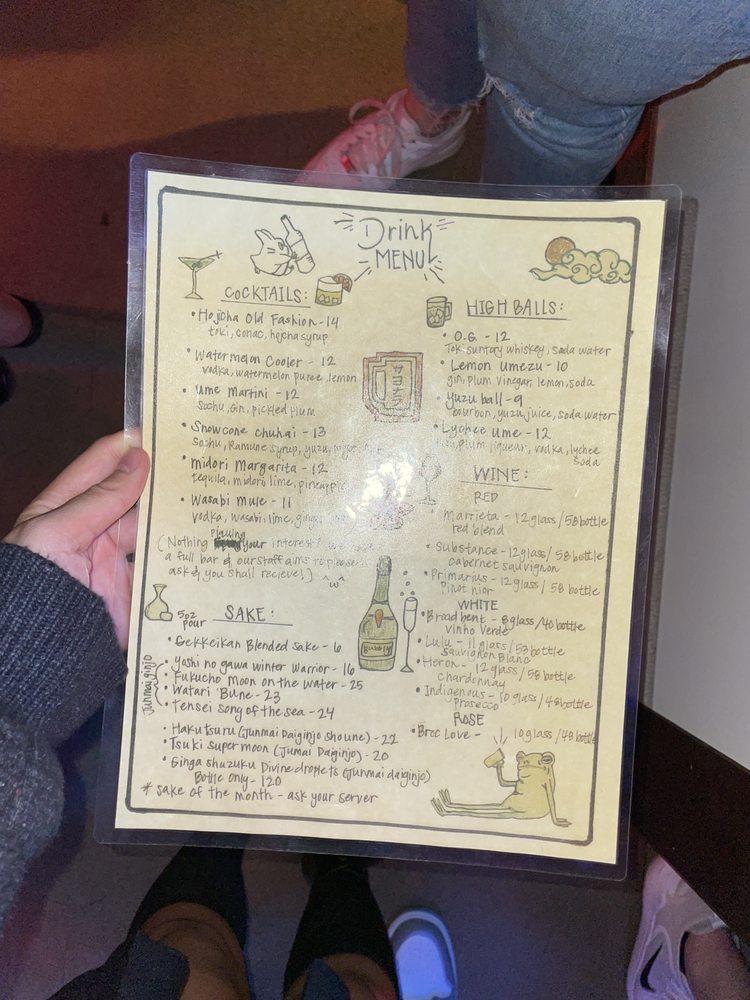 Drink
MENU
COCKTAILS:
• Hojicha Old Fashion - 14
toki, conac, hojicha syrup
• Watermelon Cooler - 12
vodka, watermelon puree, lemon
• Ume Martini - 12
Sochu, Gin, pickled plum
• Snowcone chuhai - 13
Sochu, Ramune syrup, yuzu,
• midori Margarita - 12
tequila, midori, lime, pineapple
• Wasabi mule - 11
vodka, wasabi, lime,
(Nothing piquing your interest?
a full bar & our staff aims to please.
ask & you shall recieve!)
5oz
pour
SAKE:
• Gekkeikan Blended sake - 6
Junmai ginjo
• Yoshi no gawa winter warrior - 16
• Fukucho moon on the water - 25
• Watari Bune - 23
• Tensei song of the sea - 24
• Hakutsuru (Junmai Daiginjo shoune) - 22
• Tsuki super moon (Jumai Daiginjo) - 20
• Ginga shuzuku Divine droplets (Junmai daiginjo)
Bottle only - 120
* sake of the month - ask your server
サヨナラ
HIGH BALLS:
• O.G. - 12
Toki suntory whiskey, soda water
• Lemon Umezu - 10
gin, plum vinegar, lemon, soda
• Yuzu ball - 9
bourbon, yuzu, juice, soda water
• Lychee ume - 12
plum liqueur, vodka, lychee
soda
WINE:
RED
Marrieta - 12 glass / 58 bottle
red blend
• Substance - 12 glass / 58 bottle
cabernet sauvignon
• Primarius - 12 glass / 58 bottle
Pinot nior
WHITE
• Broadbent - 8 glass / 40 bottle
Vinho Verde
• Lulu - 11 glass / 53 bottle
Sauvignon Blanc
• Heron - 12 glass / 58 bottle
chardonnay
• Indigenous - 10 glass / 48 bottle
Prosecco
ROSE
• Broc Love - 10 glass / 48 bottle